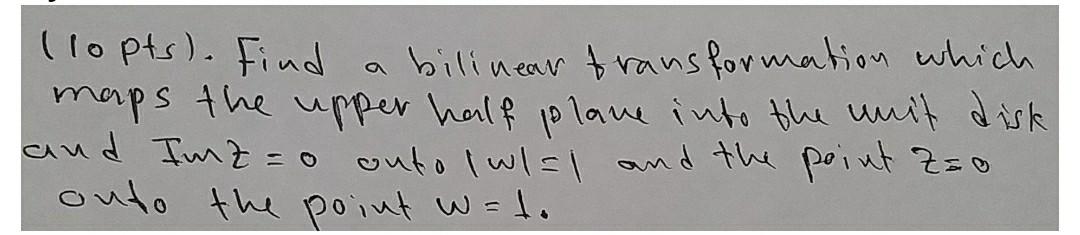 (10 pts). Find a bilinear transformation which
maps the upper half plane into the unit disk
and Imz = 0 onto |w|=1 and the point z=0
onto the point w = 1.